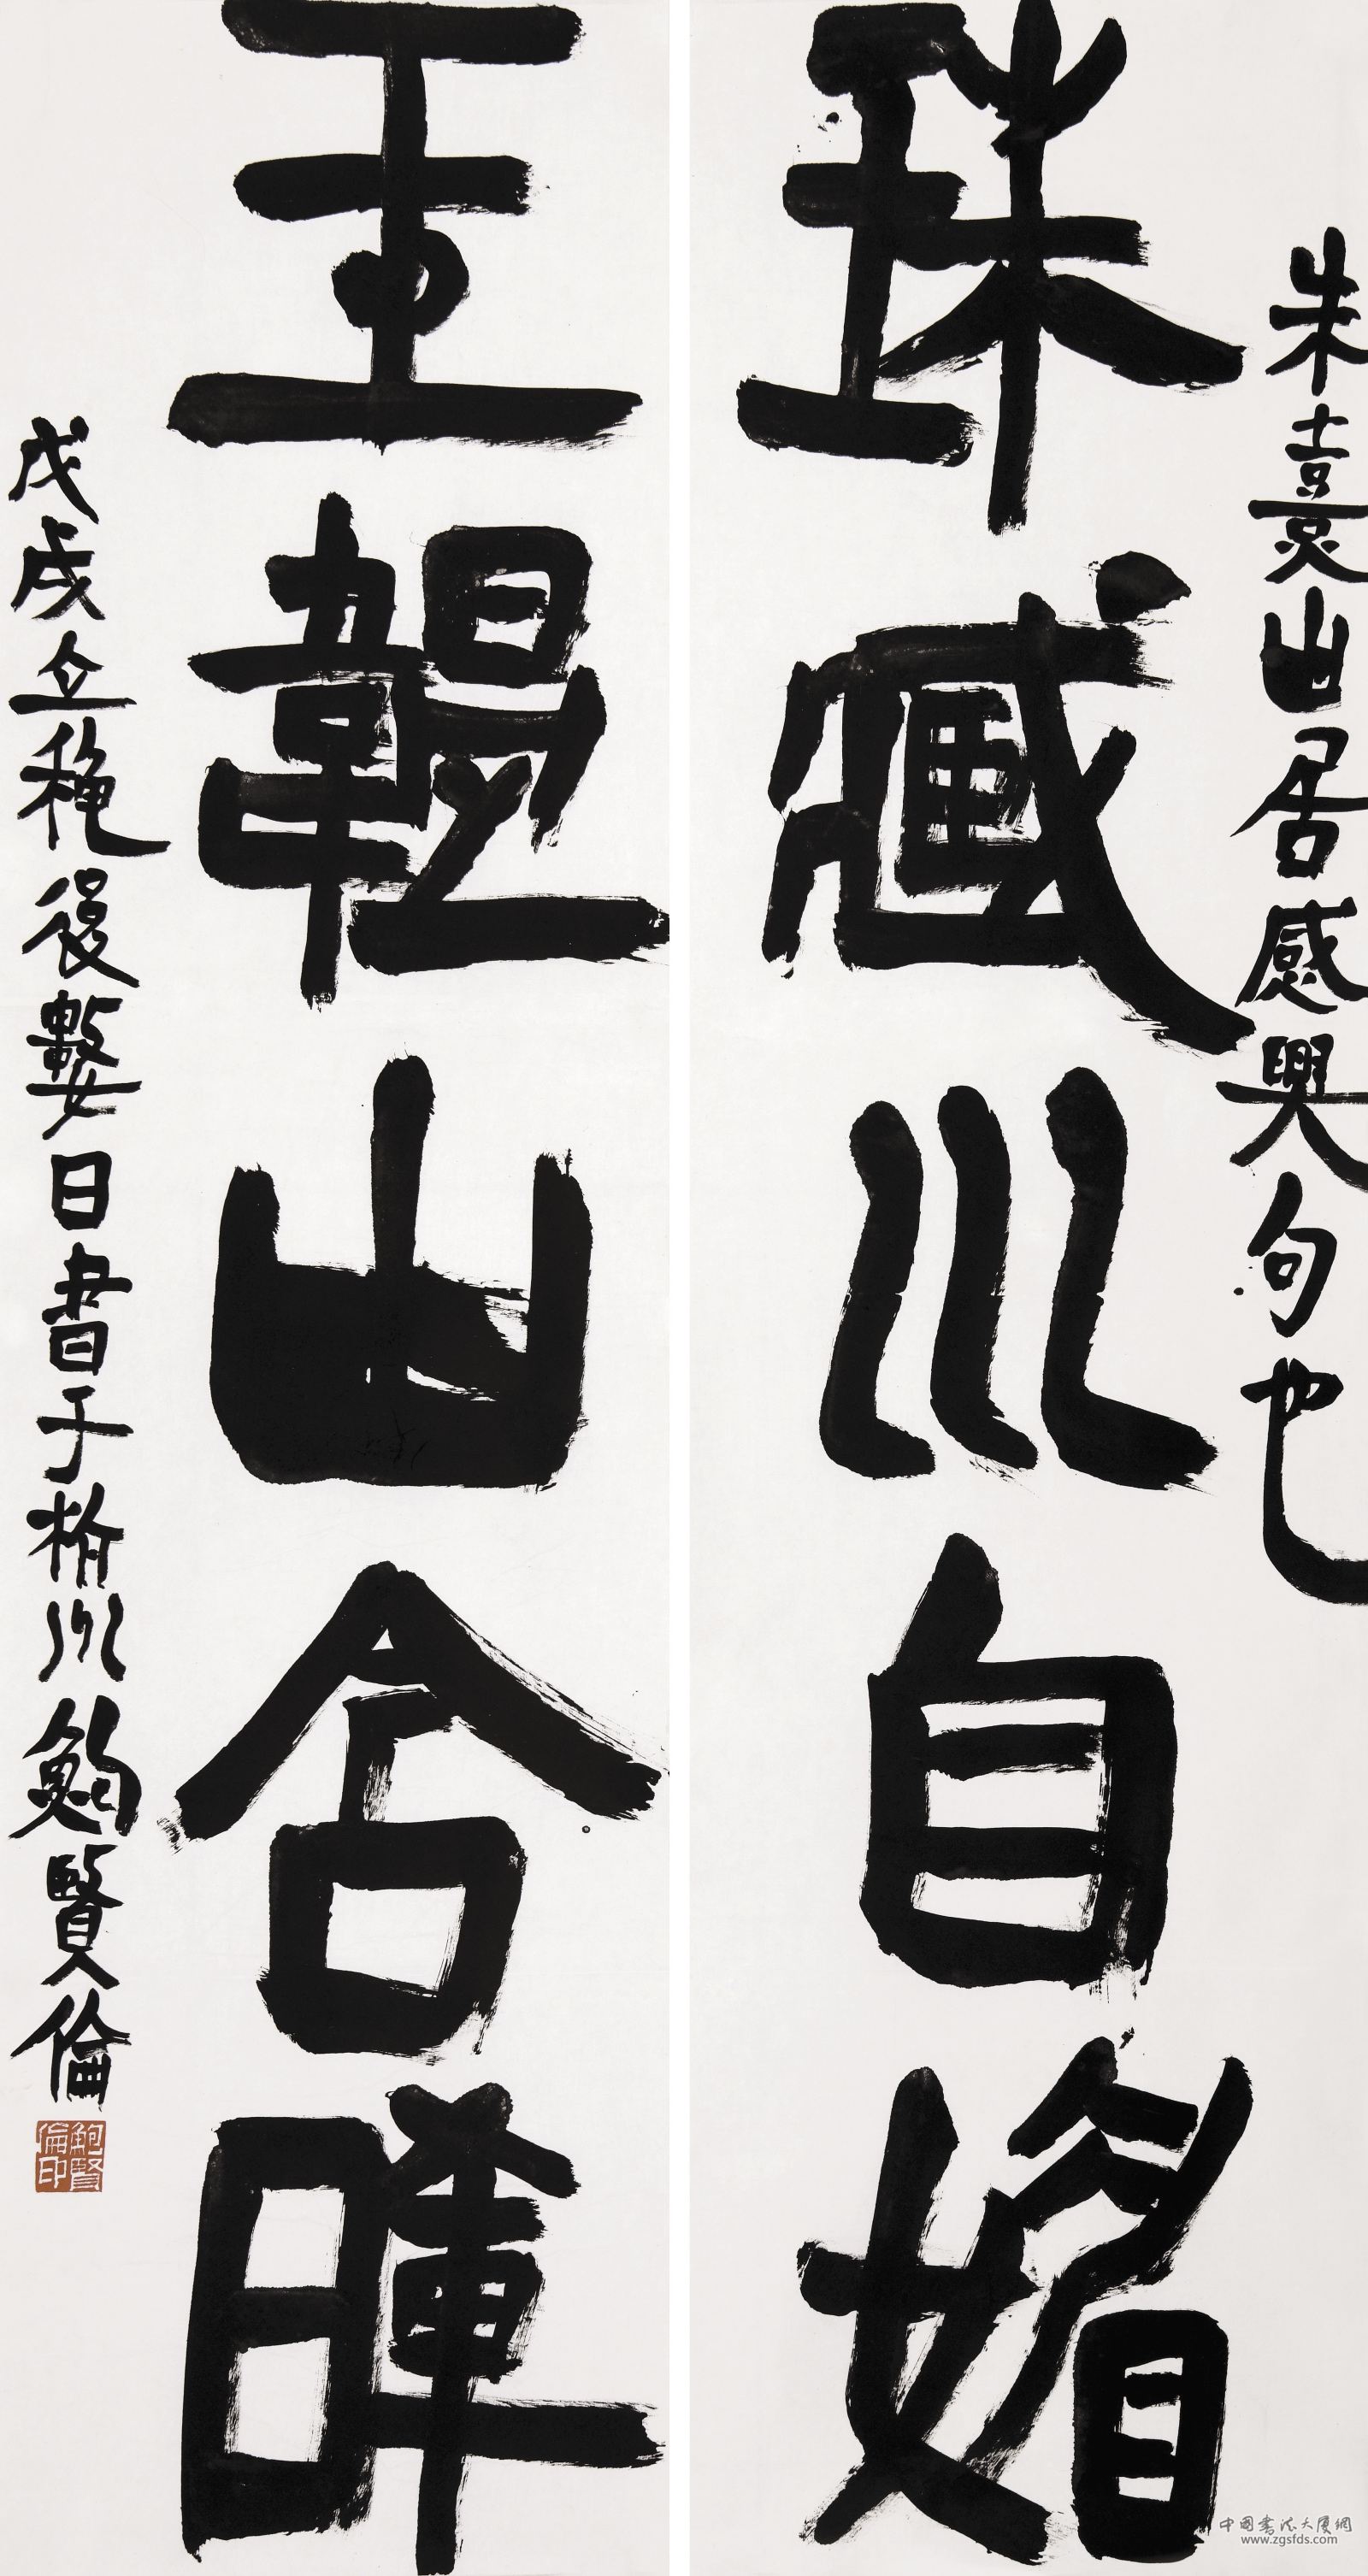 朱熹山居感興句也
珠臧川自媚
玉韞山含暉
戊戌立穐後數日書于州鮑賢倫
鮑賢倫印
中国书法大厦網
www.zgsfds.com